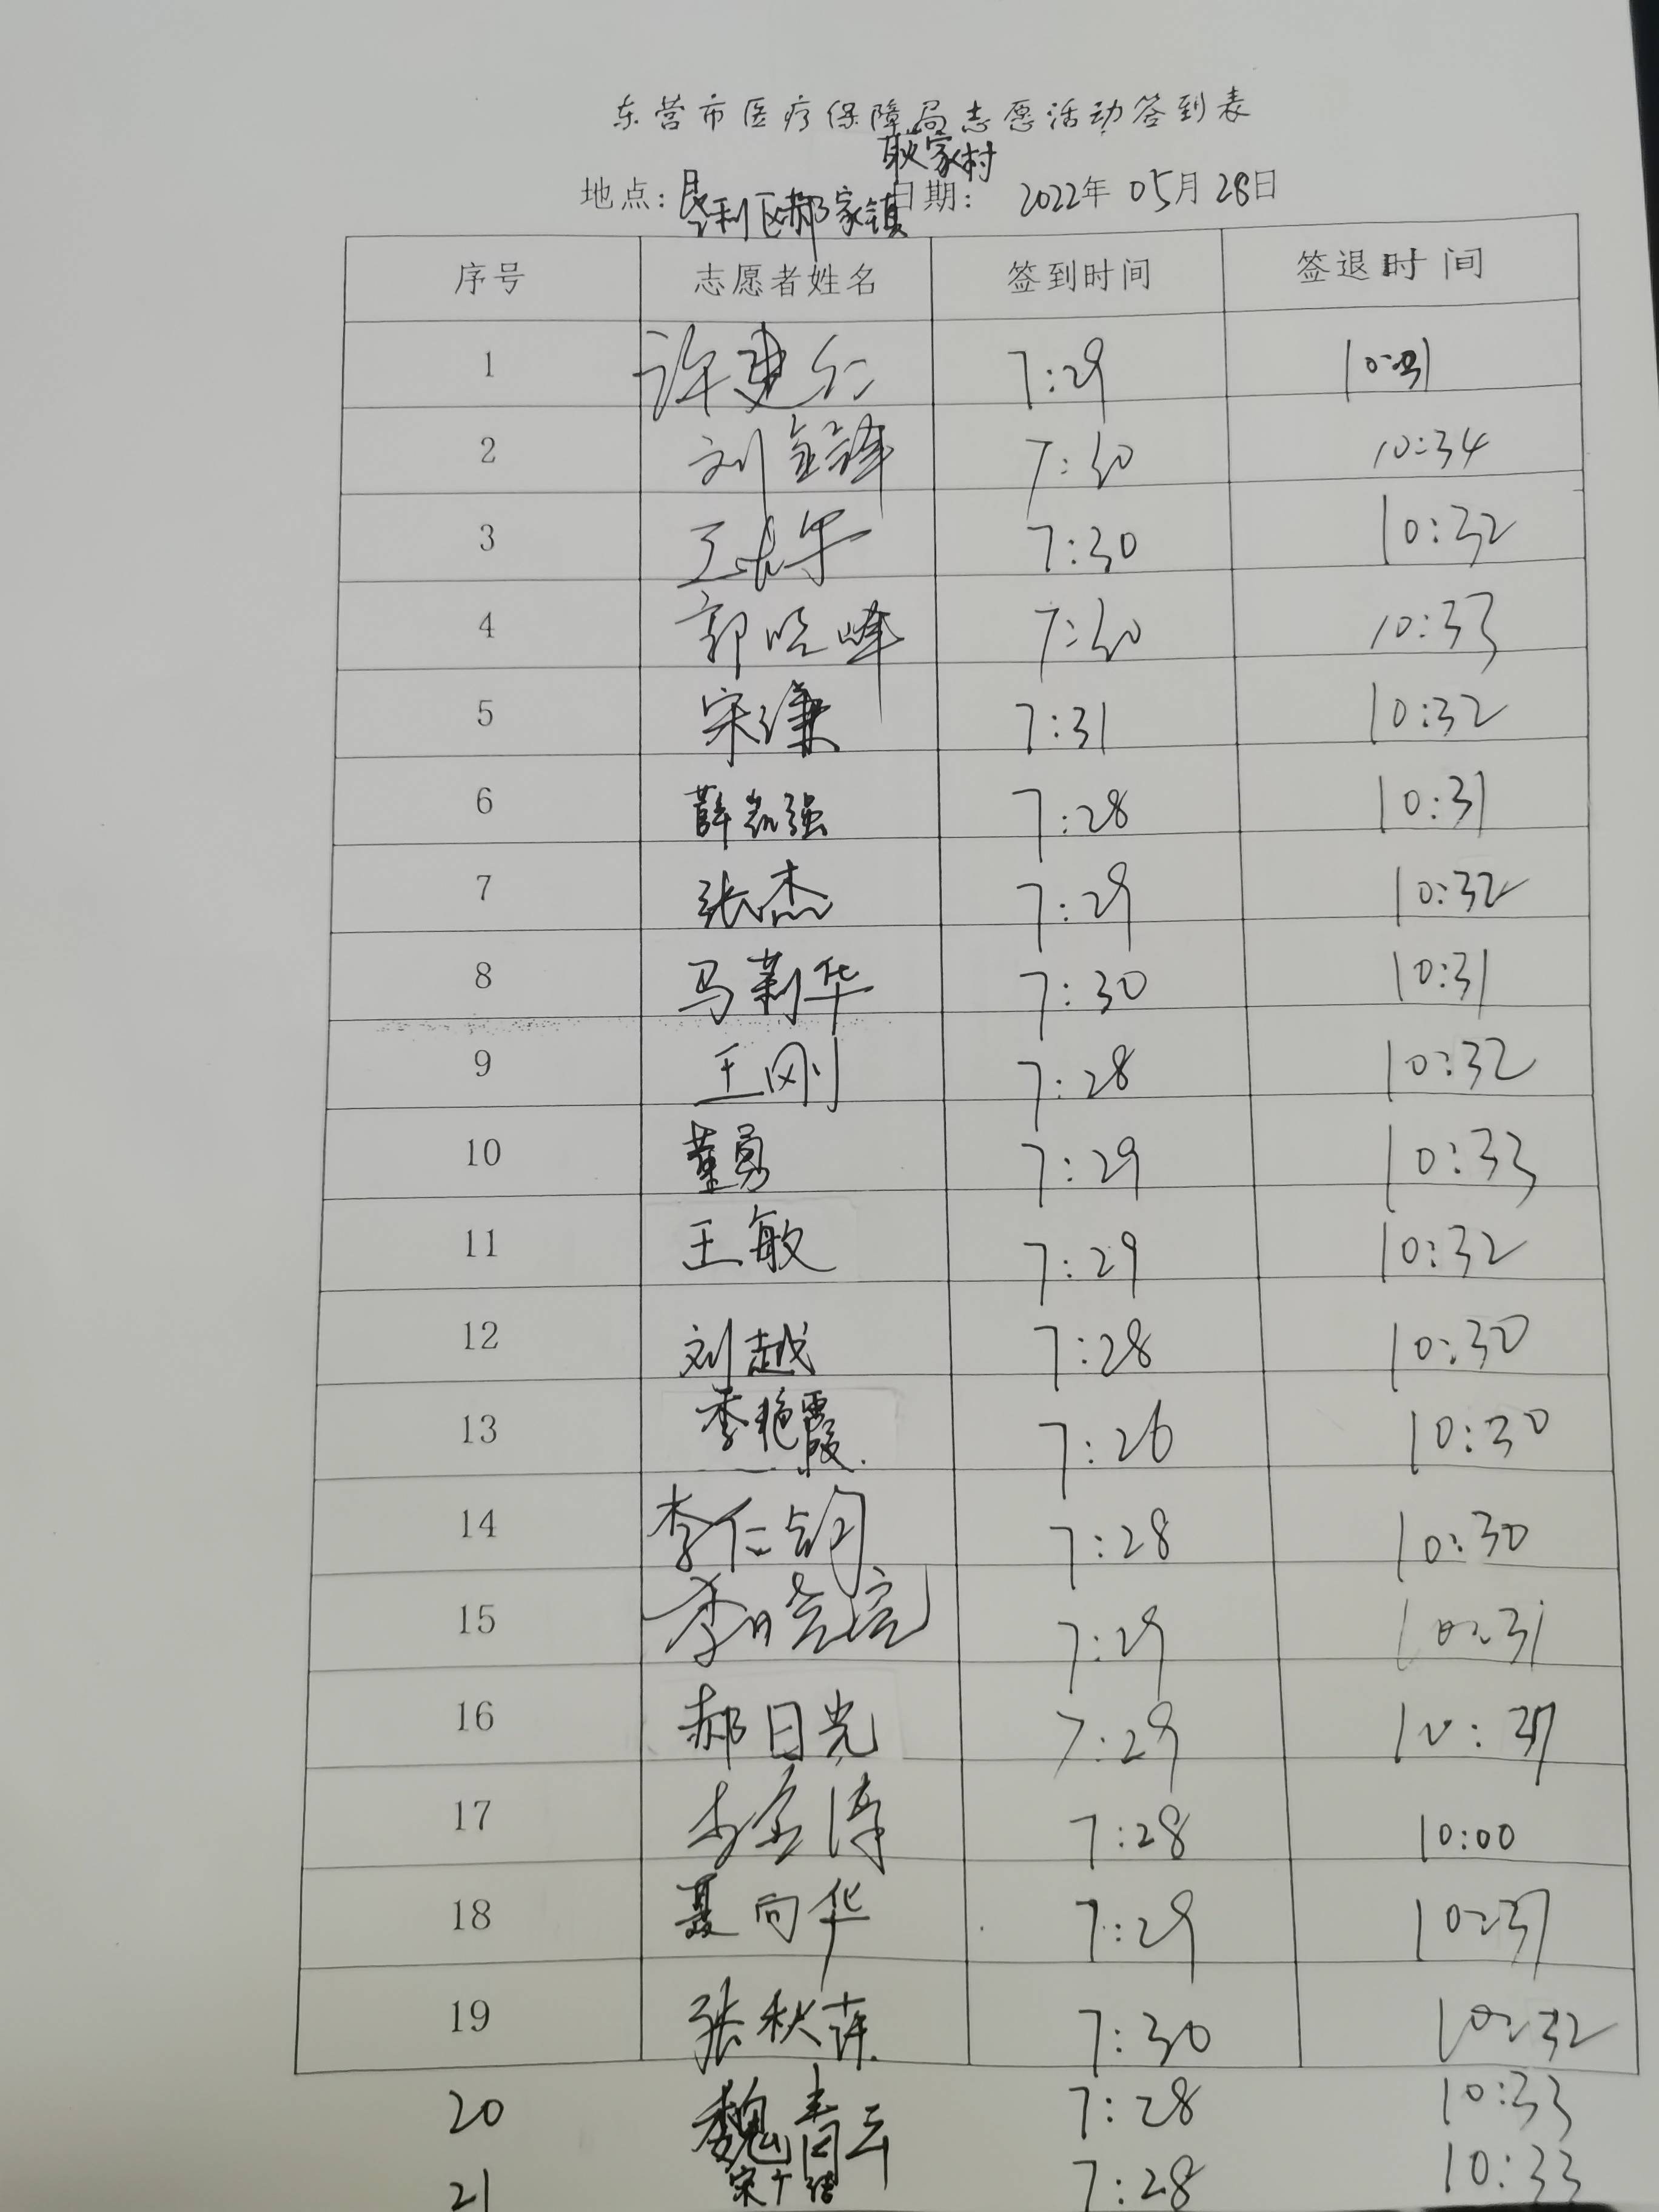 东营市医疗保障局志愿活动签到表
耿家村
地点：垦利区郝家镇 日期： 2022年 05月 28日
序号 志愿者姓名 签到时间 签退时间
1 许建仁 7:29 10:31
2 刘金锋 7:30 10:34
3 7:30 10:32
4 郭晓峰 7:30 10:33
5 宋谦 7:31 10:32
6 薛凯强 7:28 10:31
7 张杰 7:29 10:32
8 马莉华 7:30 10:31
9 王刚 7:28 10:32
10 董勇 7:29 10:33
11 王敏 7:29 10:32
12 刘越 7:28 10:30
13 李艳霞 7:26 10:30
14 李仁 7:28 10:30
15 李晓 7:29 10:31
16 郝日光 7:29 10:31
17 7:28 10:00
18 聂向华 7:29 10:31
19 张秋萍 7:30 10:32
20 魏青云 7:28 10:33
21 7:28 10:33